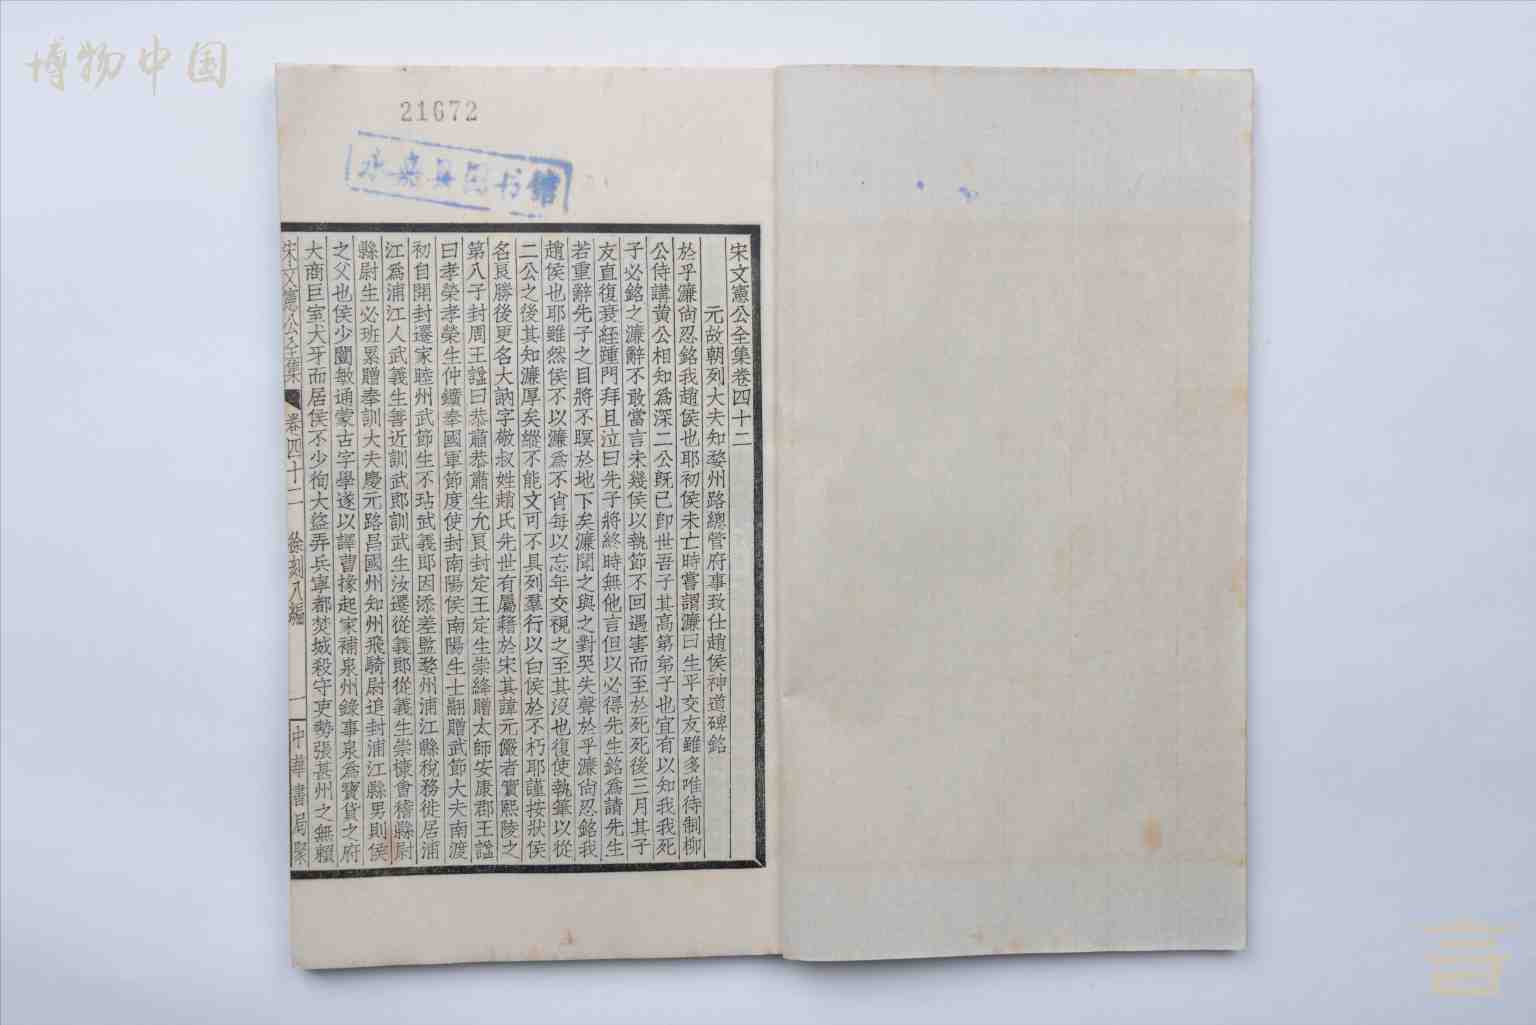 博物中国
21672
永嘉县图书馆
宋文憲公全集卷四十二
元故朝列大夫知婺州路總管府事致仕趙侯神道碑銘
於乎濂尙忍銘我趙侯也耶初侯未亡時嘗謂濂曰生平交友雖多唯待制柳
公侍講黃公相知爲深二公旣已卽世吾子其高第弟子也宜有以知我我死
子必銘之濂辭不敢當言未幾侯以執節不回遇害而至於死死後三月其子
友直復衰絰踵門拜且泣曰先子將終時無他言但以必得先生銘爲請先生
若重辭先子之目將不暝於地下矣濂聞之與之對哭失聲於乎濂尙忍銘我
趙侯也耶雖然侯不以濂爲不肖每以忘年交視之至其沒也復使執筆以從
二公之後其知濂厚矣縱不能文可不具列羣行以白侯於不朽耶謹按狀侯
名良勝後更名大訥字敬叔姓趙氏先世有屬籍於宋其諱元儼者實熙陵之
第八子封周王諡曰恭肅恭肅生允良封定王定生崇絳贈太師安康郡王諡
曰孝榮孝榮生仲鑛奉國軍節度使封南陽侯南陽生士翮贈武節大夫南渡
初自開封遷家睦州武節生不玷武義郎因添差監婺州浦江縣稅務徙居浦
江爲浦江人武義生善近訓武郎訓武生汝遷從義郎從義生崇棣會稽縣尉
縣尉生必班累贈奉訓大夫慶元路昌國州知州飛騎尉追封浦江縣男則侯
之父也侯少闓敏通蒙古字學遂以譯曹掾起家補泉州錄事泉爲寶貨之府
大商巨室犬牙而居侯不少徇大盜弄兵寧都焚城殺守吏勢張甚州之無賴
宋文憲公全集 卷四十二 徐刻八編 一 中華書局聚